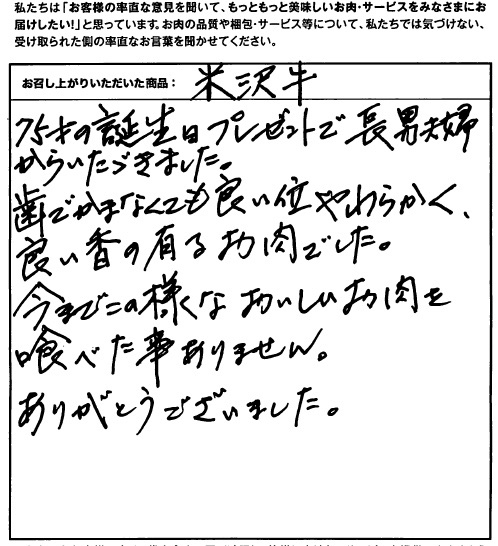 私たちは「お客様の率直な意見を聞いて、もっともっと美味しいお肉・サービスをみなさまにお
届けしたい!」と思っています。お肉の品質や梱包・サービス等について、私たちでは気づけない、
受け取られた側の率直なお言葉を聞かせてください。
お召し上がりいただいた商品: 米沢牛
75才の誕生日プレゼントで長男夫婦
からいただきました。
歯でかまなくても良い位やわらかく、
良い香の有るお肉でした。
今までこの様なおいしいお肉を
喰べた事ありません。
ありがとうございました。